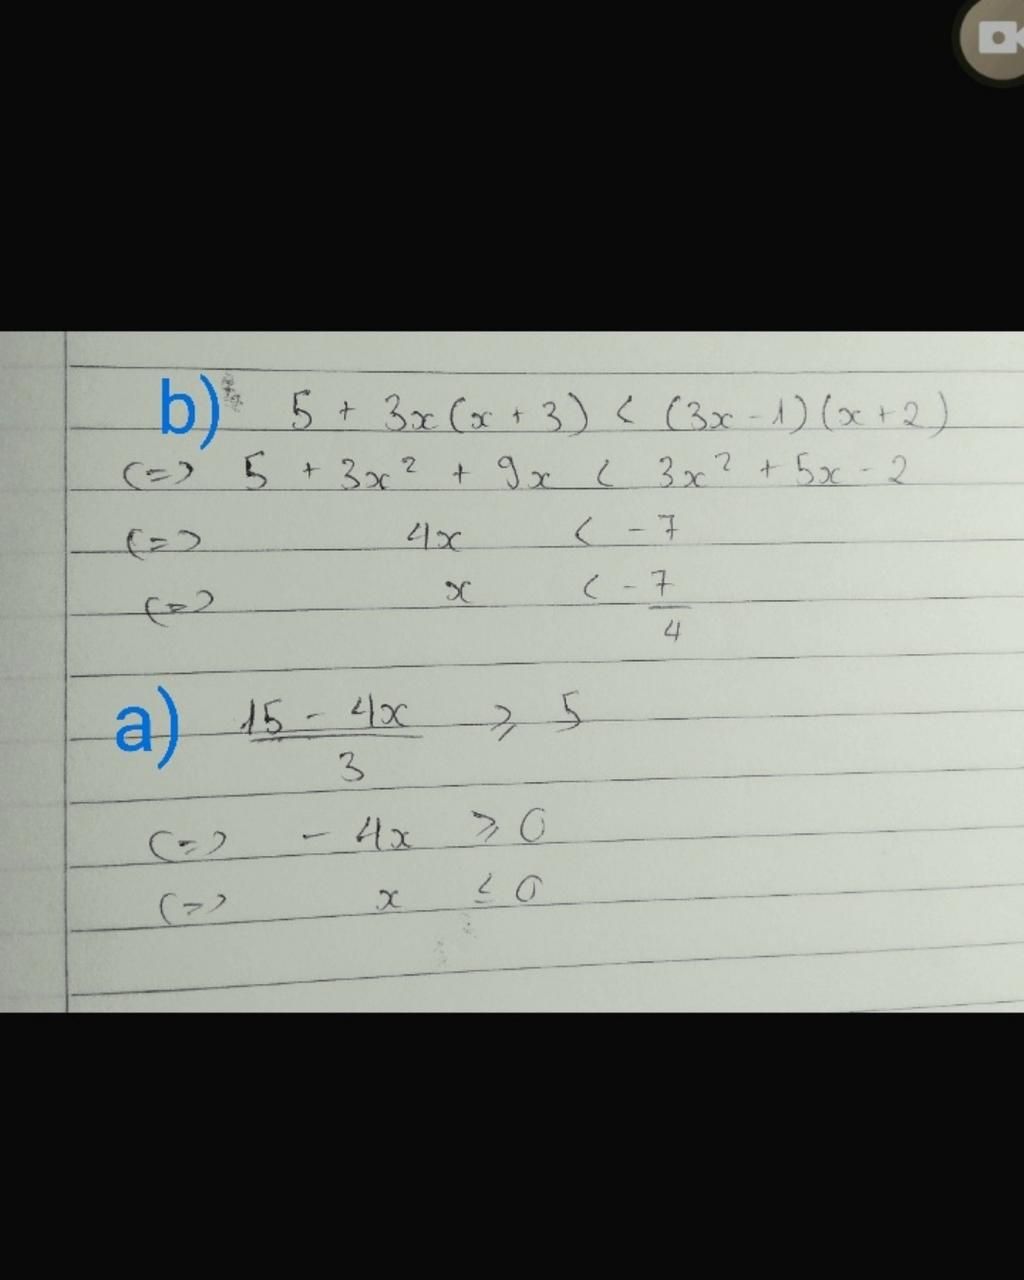 b) 5 + 3x(x + 3) < (3x - 1)(x + 2)
<=> 5 + 3x² + 9x < 3x² + 5x - 2
<=> 4x < - 7
<=> x < - 7/4
a) (15 - 4x)/3 ≥ 5
<=> - 4x ≥ 0
<=> x ≤ 0